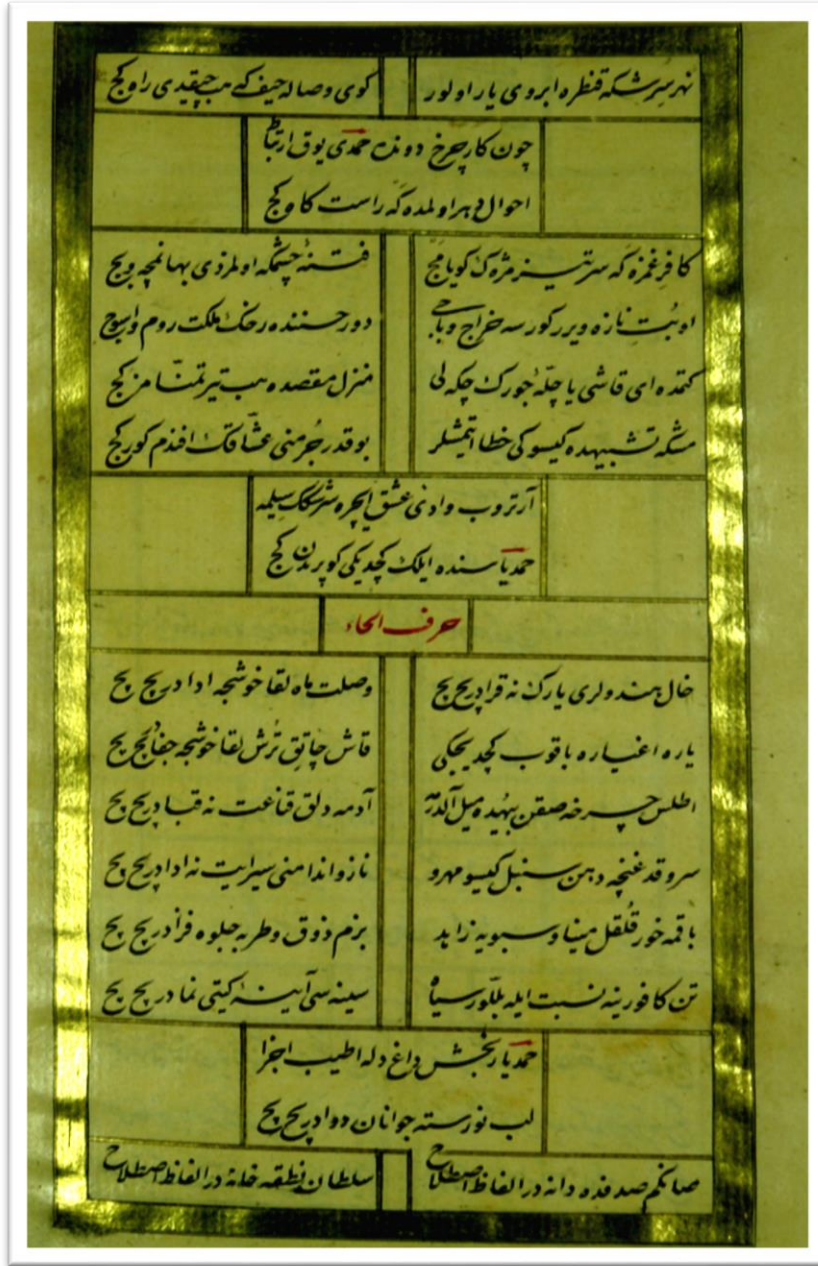 نهر سرشكه قنطره ابروی یار اولور كوی وصاله حیف كے هب چیقدی راه كج
چون كار چرخ دونده حمدی یوق ارتباط
احوال دهر اولمده كه راست كاه كج
كافر غمزه كه سرتیز مژه ك كویا مج فتنهٔ چشمكه اولمزدی بها نمچه و بج
او بت نازه ویرر كورسه خراج و باجی دور حسننده رخك ملكت روم
كتمده ای قاشی یا چلّهٔ جورك چكه لی منزل مقصده هب تیر تمنّامز كج
مشكه تشبیهده كیسوكی خطا ایتمشلر بو قدر جرمنی عشّاقك افندم كورے كج
آرتروب وادئ عشق ایچره سرشكك سیله
حمدیا سنده ایلك كچدیكی كوپریدن كج
حرف الحاء
خال هندولری یارك نه قرادر بح بح وصلت ماه لقا خوشجه ادادر بح بح
یاره اغیاره باقوب كچدیجكی قاش چاتق ترش لقا خوشجه جفادر بح بح
اطلس چرخه صقن بیهده میل آدمه دلق قناعت نه قبادر بح بح
سرو قد غنچه دهن سنبل كیسو مهرو ناز و اندامنی سیر ایت نه ادادر بح بح
باقمه خور قلقل مینا و سبویه زاهد بزم ذوق و طربه جلوه فزادر بح بح
تن كافورینه نسبت ایله بلّور سیاه سینه سی آیینهٔ كیتی نمادر بح بح
حمدیا بخش داغ دله اطیب اجزا
لب نورسته جوانان دوادر بح بح
صانكم صدفده دانه در الفاظ اصطلاح سلطان نطقه خانه در الفاظ اصطلاح